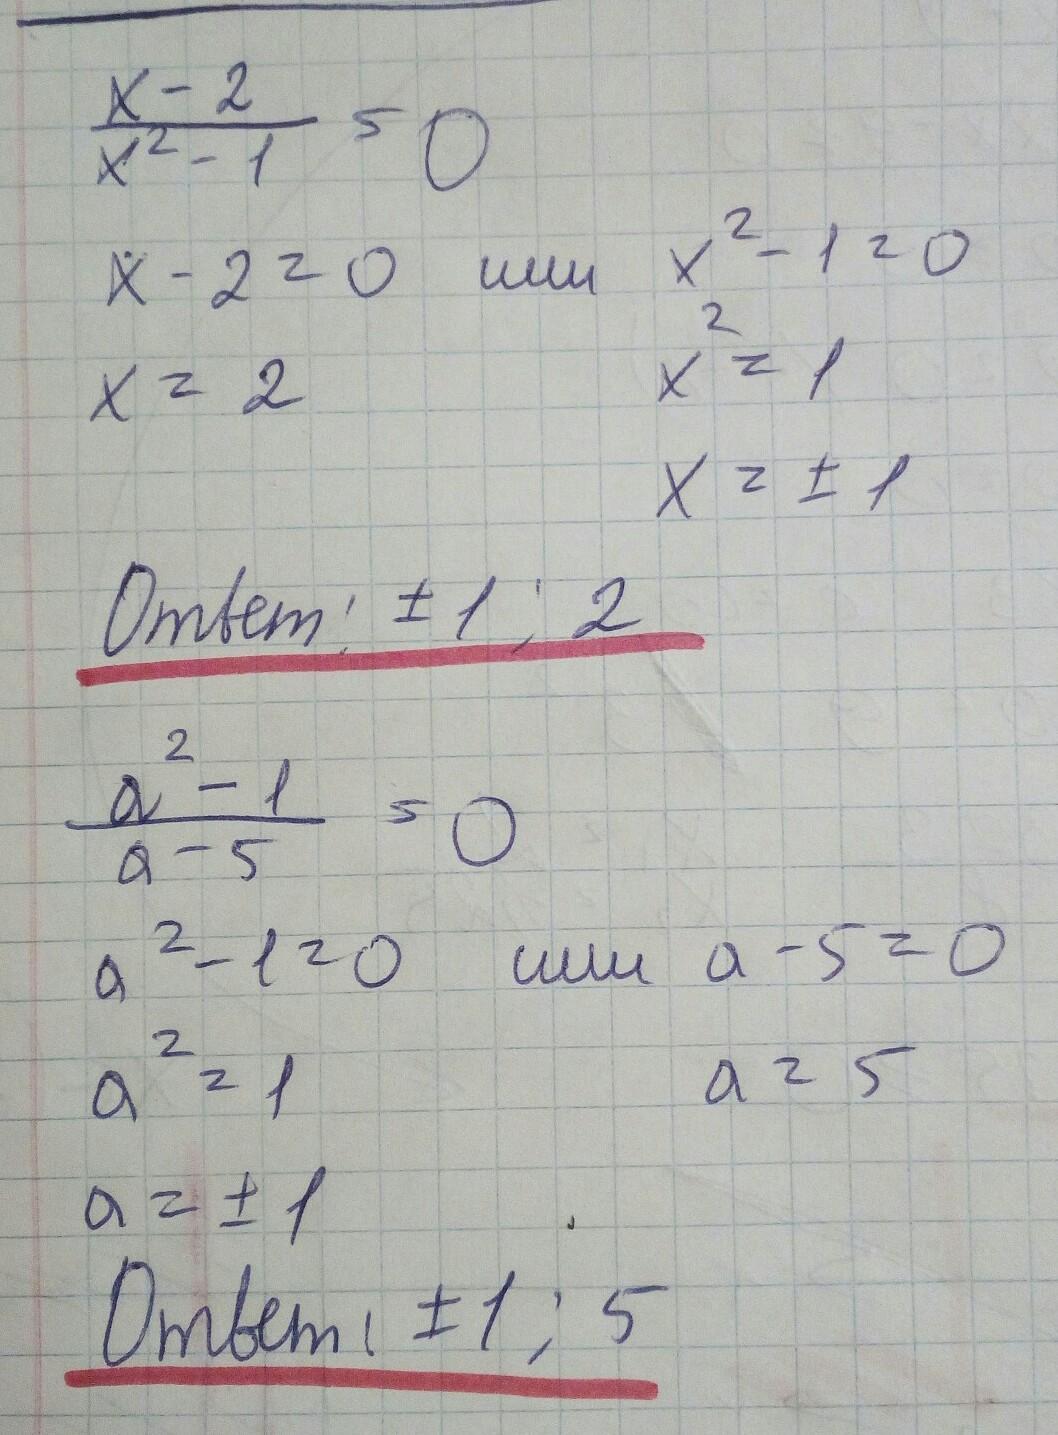 x - 2
x² - 1 = 0
x - 2 = 0 или x² - 1 = 0
x = 2 x² = 1
x = ± 1
Ответ: ± 1 ; 2
a² - 1
a - 5 = 0
a² - 1 = 0 или a - 5 = 0
a² = 1 a = 5
a = ± 1
Ответ: ± 1 ; 5